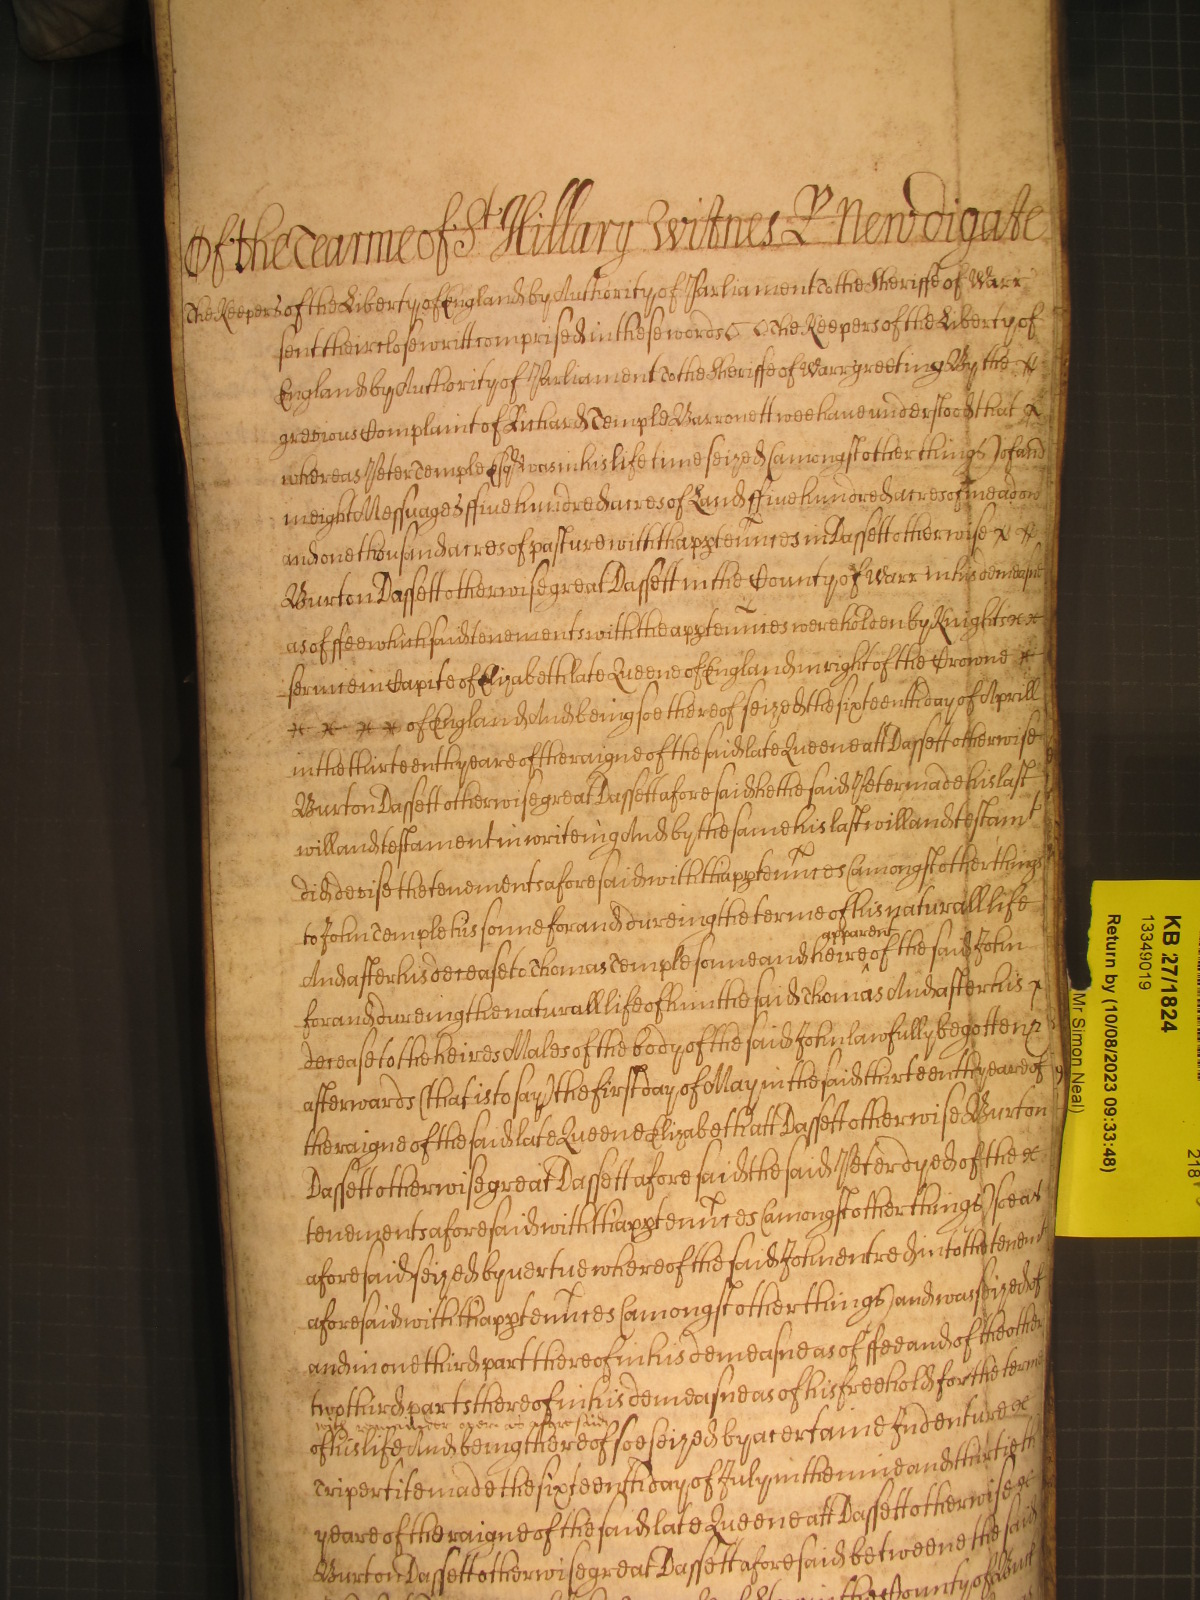 Of the Tearme of St Hillary Witnes R Newdigate
The Keepers of the Liberty of England by Authority of Parliament To the Sheriffe of Warr
sent their close writt comprised in these words The Keepers of the Liberty of
England by Authority of Parliament To the Sheriffe of Warr greeting By the
grevious Complaint of Richard Temple Barronett wee have understood that
whereas Peter Temple Esqr was in his life time seized (amongst other things) of and
in eight Messuages ffive hundred acres of Land ffive hundred acres of meadow
and one thousand acres of pasture with thapptennces in Dassett otherwise
Burton Dassett otherwise great Dassett in the County of Warr in his demeasne
as of ffee which said tenements with the apptennces were holden by Knights
service in Capite of Elizabeth late Queene of England in right of the Crowne
of England And being soe thereof seized the sixteenth day of Aprill
in the thirteenth yeare of the raigne of the said late Queene att Dassett otherwise
Burton Dassett otherwise great Dassett aforesaid hee the said Peter made his last
will and testament in writeing And by the same his last will and testamt
did devise the tenements aforesaid with thapptennces (amongst other things
to John Temple his sonne for and dureing the terme of his naturall life
And after his decease to Thomas Temple sonne and heire apparent of the said John
for and dureing the naturall life of him the said Thomas And after his
decease to the heires Males of the body of the said John lawfully begotten
afterwards (that is to say) the first day of May in the said thirteenth yeare of
the raigne of the said late Queene Elizabeth att Dassett otherwise Burton
Dassett otherwise great Dassett aforesaid the said Peter dyed of the
tenements aforesaid with thapptennces (amongst other things) soe as
aforesaid seized by vertue whereof the said John entred into the tenemt
aforesaid with thapptennces (amongst other things) and was seized of
and in one third part thereof in his demeasne as of ffee and of the other
two third parts thereof in his demeasne as of his freehold for the terme
with remainder over as aforesaid
of his life And being thereof soe seized by a certaine Indenture
Tripertite made the sixteenth day of July in the nine and thirtieth
yeare of the raigne of the said late Queene att Dassett otherwise
Burton Dassett otherwise great Dassett aforesaid betweene the said
in the County of
KB 27/1824
13349019
Return by (10/08/2023 09:33:48)
Mr Simon Neal)